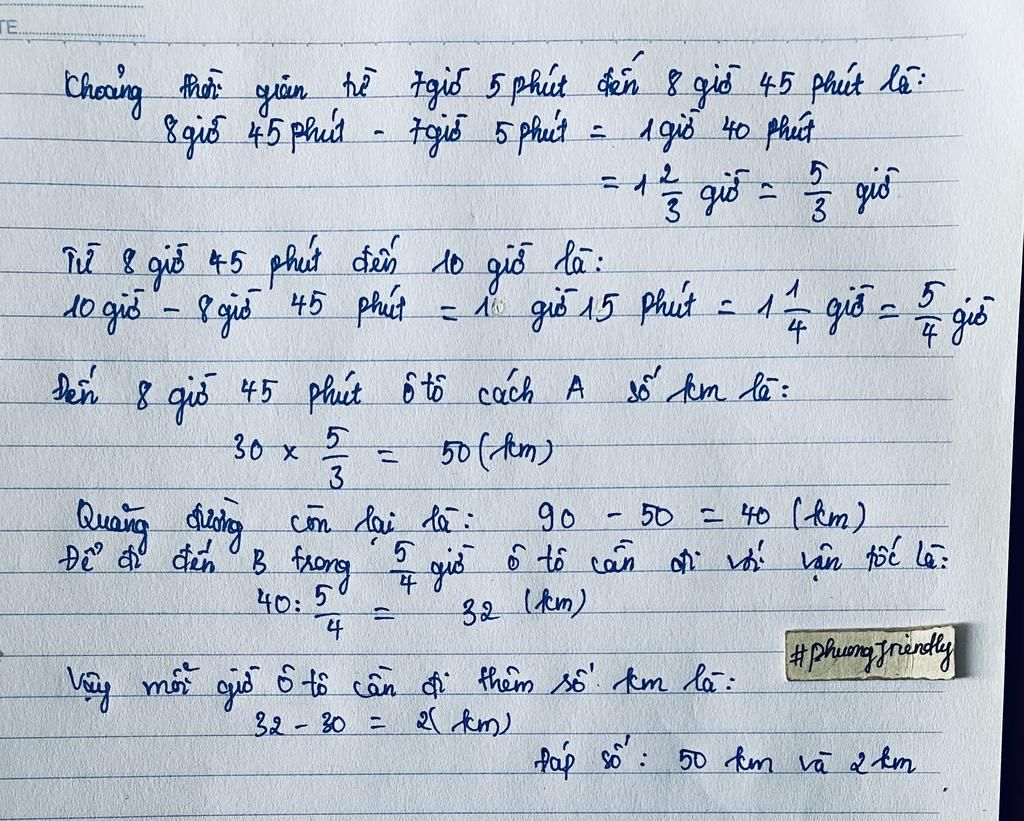 TE
Khoảng thời gian từ 7 giờ 5 phút đến 8 giờ 45 phút là:
8 giờ 45 phút - 7 giờ 5 phút = 1 giờ 40 phút
= 1 2/3 giờ = 5/3 giờ
Từ 8 giờ 45 phút đến 10 giờ là:
10 giờ - 8 giờ 45 phút = 1 giờ 15 phút = 1 1/4 giờ = 5/4 giờ
Đến 8 giờ 45 phút ô tô cách A số km là:
30 × 5/3 = 50 (km)
Quãng đường còn lại là: 90 - 50 = 40 (km)
Để đi đến B trong 5/4 giờ ô tô cần đi với vận tốc là:
40 : 5/4 = 32 (km)
#phuongfriendly
Vậy mỗi giờ ô tô cần đi thêm số km là:
32 - 30 = 2 (km)
Đáp số: 50 km và 2 km